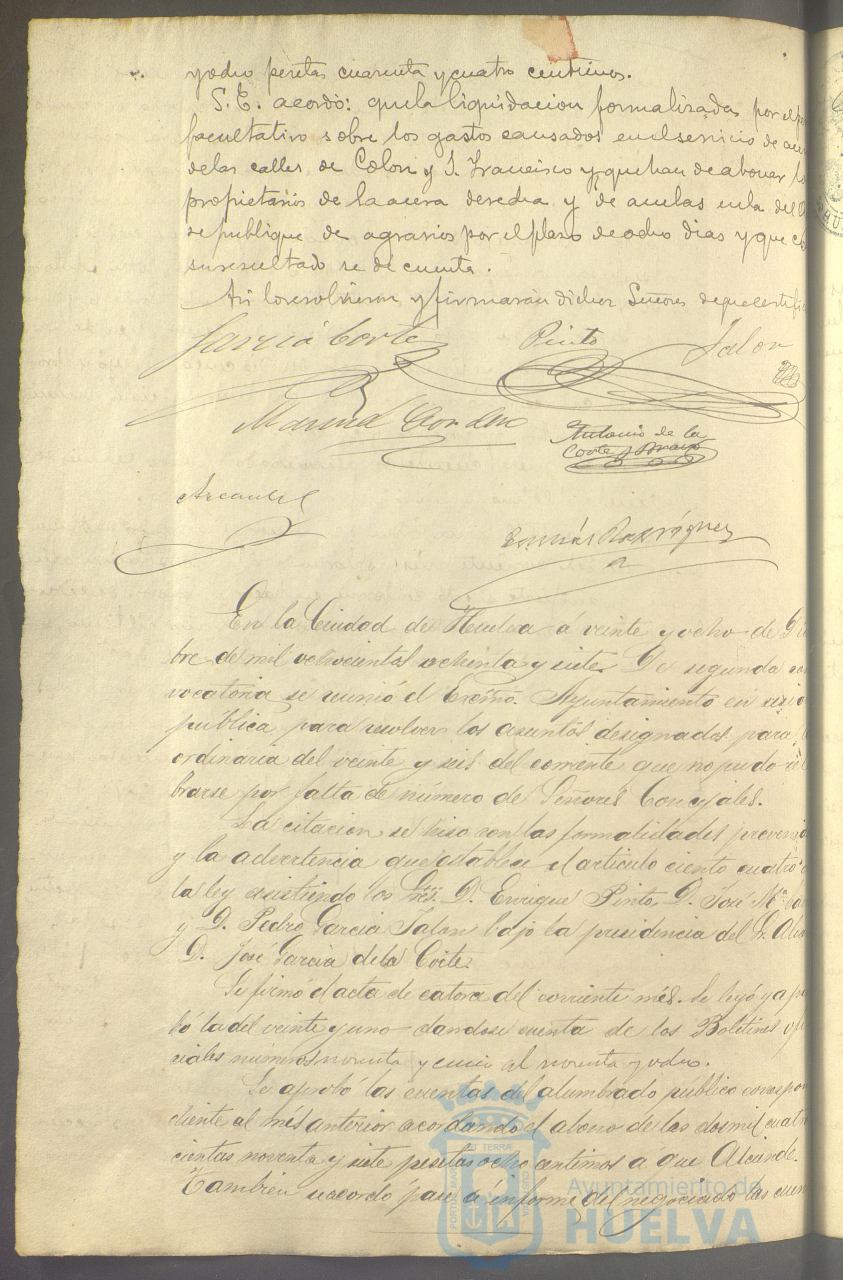 y ocho pesetas cuarenta y cuatro centimos.
S. E. acordó: que la liquidacion formalizada por el
facultativo sobre los gastos causados en el servicio de
de las calles de Colon y S. Francisco y que han de abonar
propietarios de la acera derecha y de ambas en la del
se publique de agravios por el plazo de ocho dias y que
su resultado se dé cuenta.
Asi lo resolvieron y firmarán dichos Señores de que
Garcia Corte Pinto Jalon
Antonio de la
Corte y Bravo
Rodríguez
En la Ciudad de Huelva á veinte y ocho de
bre de mil ochocientos ochenta y siete. De segunda con
vocatoria se reunió el Excmo. Ayuntamiento en
publica para resolver los asuntos designados para
ordinaria del veinte y seis del corriente que no pudo
brarse por falta de número de Señores Concejales.
La citacion se hiso con las formalidades
y la advertencia que establece el articulo ciento cuatro
la ley asistiendo los Sres. D. Enrique Pinto, D. José Mª
y D. Pedro Garcia Jalon bajo la presidencia del S.
D. José Garcia de la Corte.
Se firmo el acta de catorce del corriente més. Se leyó y
bó la del veinte y uno dandose cuenta de los Boletines
ciales numeros noventa y cinco al noventa y ocho.
Se aprobó las cuentas del alumbrado publico
diente al més anterior acordando el abono de las dos mil
cientas noventa y siete pesetas ocho centimos á que asciende.
Tambien se acordó pase á informe del negociado las
PORTUS MARIS
ET TERRÆ
Ayuntamiento de
HUELVA